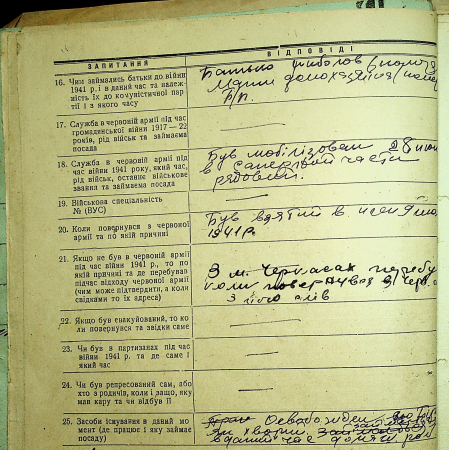 ЗАПИТАННЯ
ВІДПОВІДІ
16. Чим займались батьки до війни
1941 р. і в даний час та належ-
ність їх до комуністичної пар-
тії і з якого часу
Батько риболов
Мати домохазяйка
б/п.
17. Служба в червоній армії під час
громадянської війни 1917—22
років, рід військ та займаєма
посада
18. Служба в червоній армії під
час війни 1941 року, який час,
рід військ, останнє військове
звання та займаєма посада
Був мобілізован 28
в саперной части
рядовым.
19. Військова спеціальність
№ (ВУС)
20. Коли повернувся з червоної
армії та по якій причині
Був взятий в
1941 р.
21. Якщо не був в червоній армії
під час війни 1941 р., то по
якій причині та де перебував
підчас відходу червоної армії
(чим може підтвердити, а коли
свідками то їх адреса)
З м. Черкасах
коли повертався в
З його слів
22. Якщо був евакуйований, то ко-
ли повернувся та звідки саме
23. Чи був в партизанах під час
війни 1941 р. та де саме і
який час
24. Чи був репресований сам, або
хто з родичів, коли і защо, яку
мав кару та чи відбув її
25. Засоби існування в даний мо-
мент (де працює і яку займає
посаду)
Освобожден
в даний час